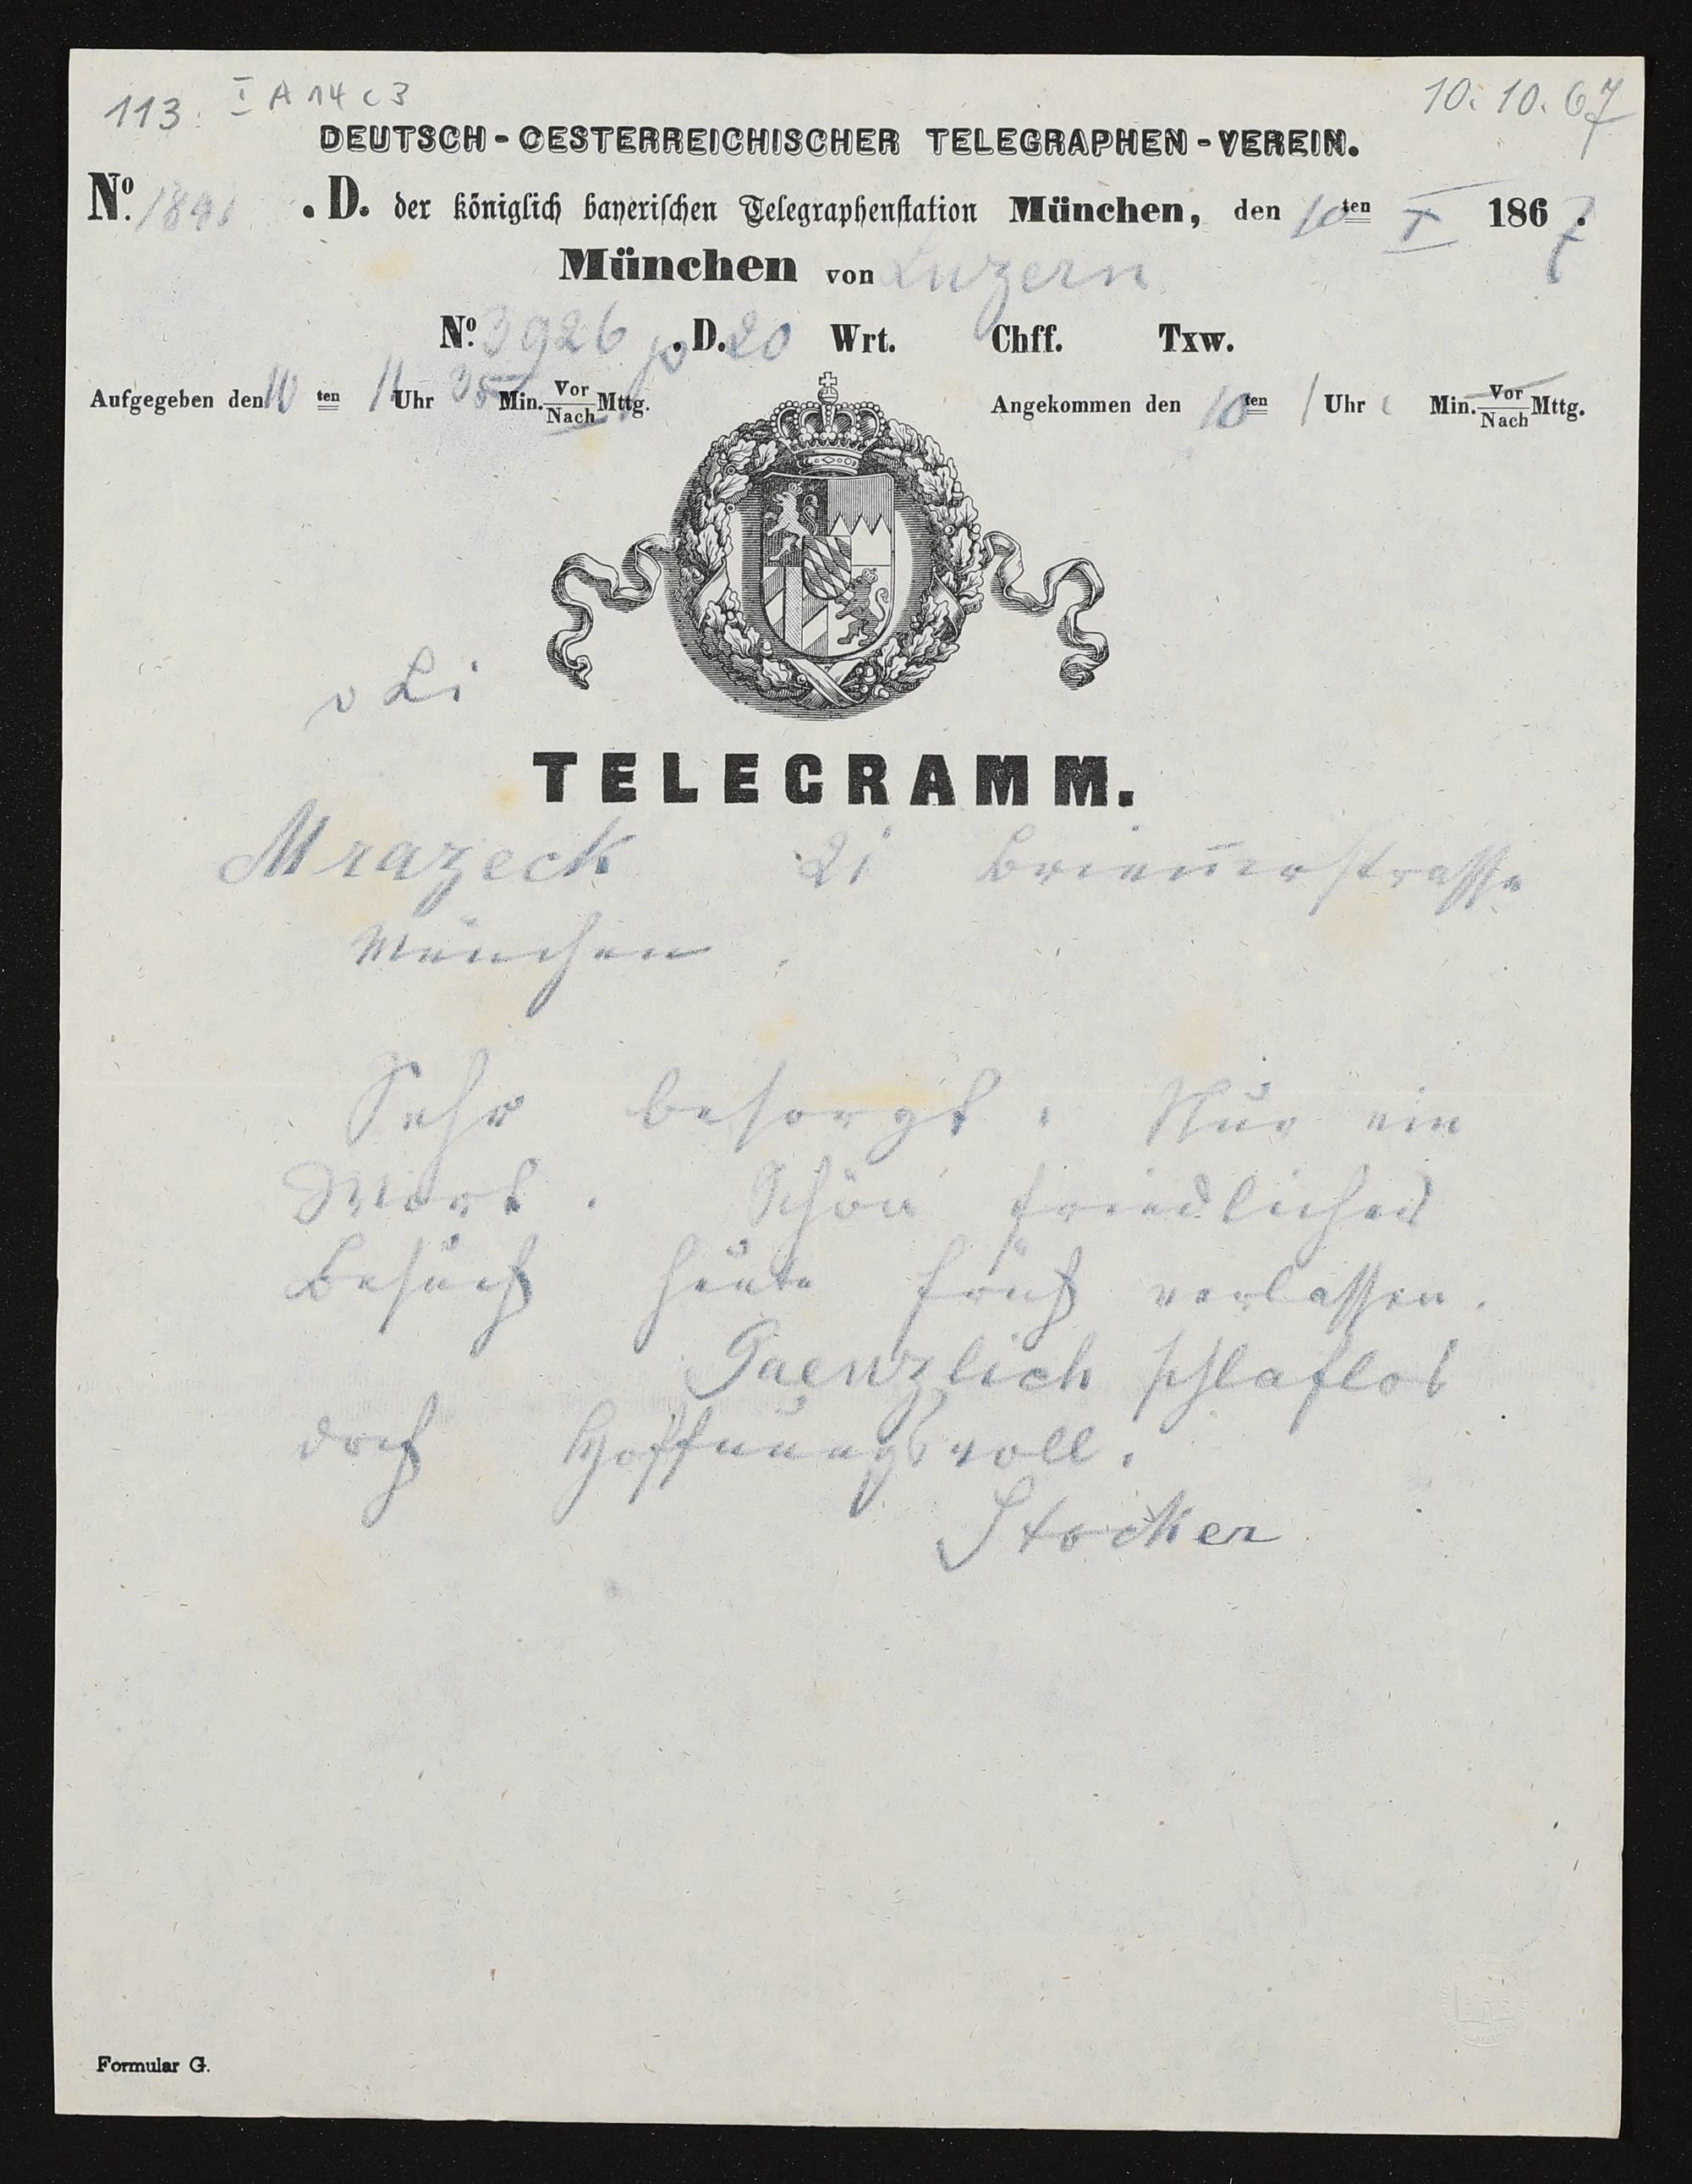 113. I A 14 c 3
10. 10. 67
DEUTSCH-OESTERREICHISCHER TELEGRAPHEN-VEREIN.
No. . D. der königlich bayerischen Telegraphenstation München, den 10ten X 1867.
München von Luzern
No. 3926 p . D. 20 Wrt. Chff. Txw.
Aufgegeben den 10 ten 11 Uhr 35 Min. Vor/Nach Mttg.
Angekommen den 10ten 1 Uhr Min. Vor/Nach Mttg.
v Li
TELEGRAMM.
Mrazeck 21 Briennerstrasse
München.
Sehr besorgt. Nur ein
Wort. Schön friedlichen
Besuch heute früh verlassen.
Gaenzlich schlaflos
doch hoffnungsvoll.
Stocker
Formular G.